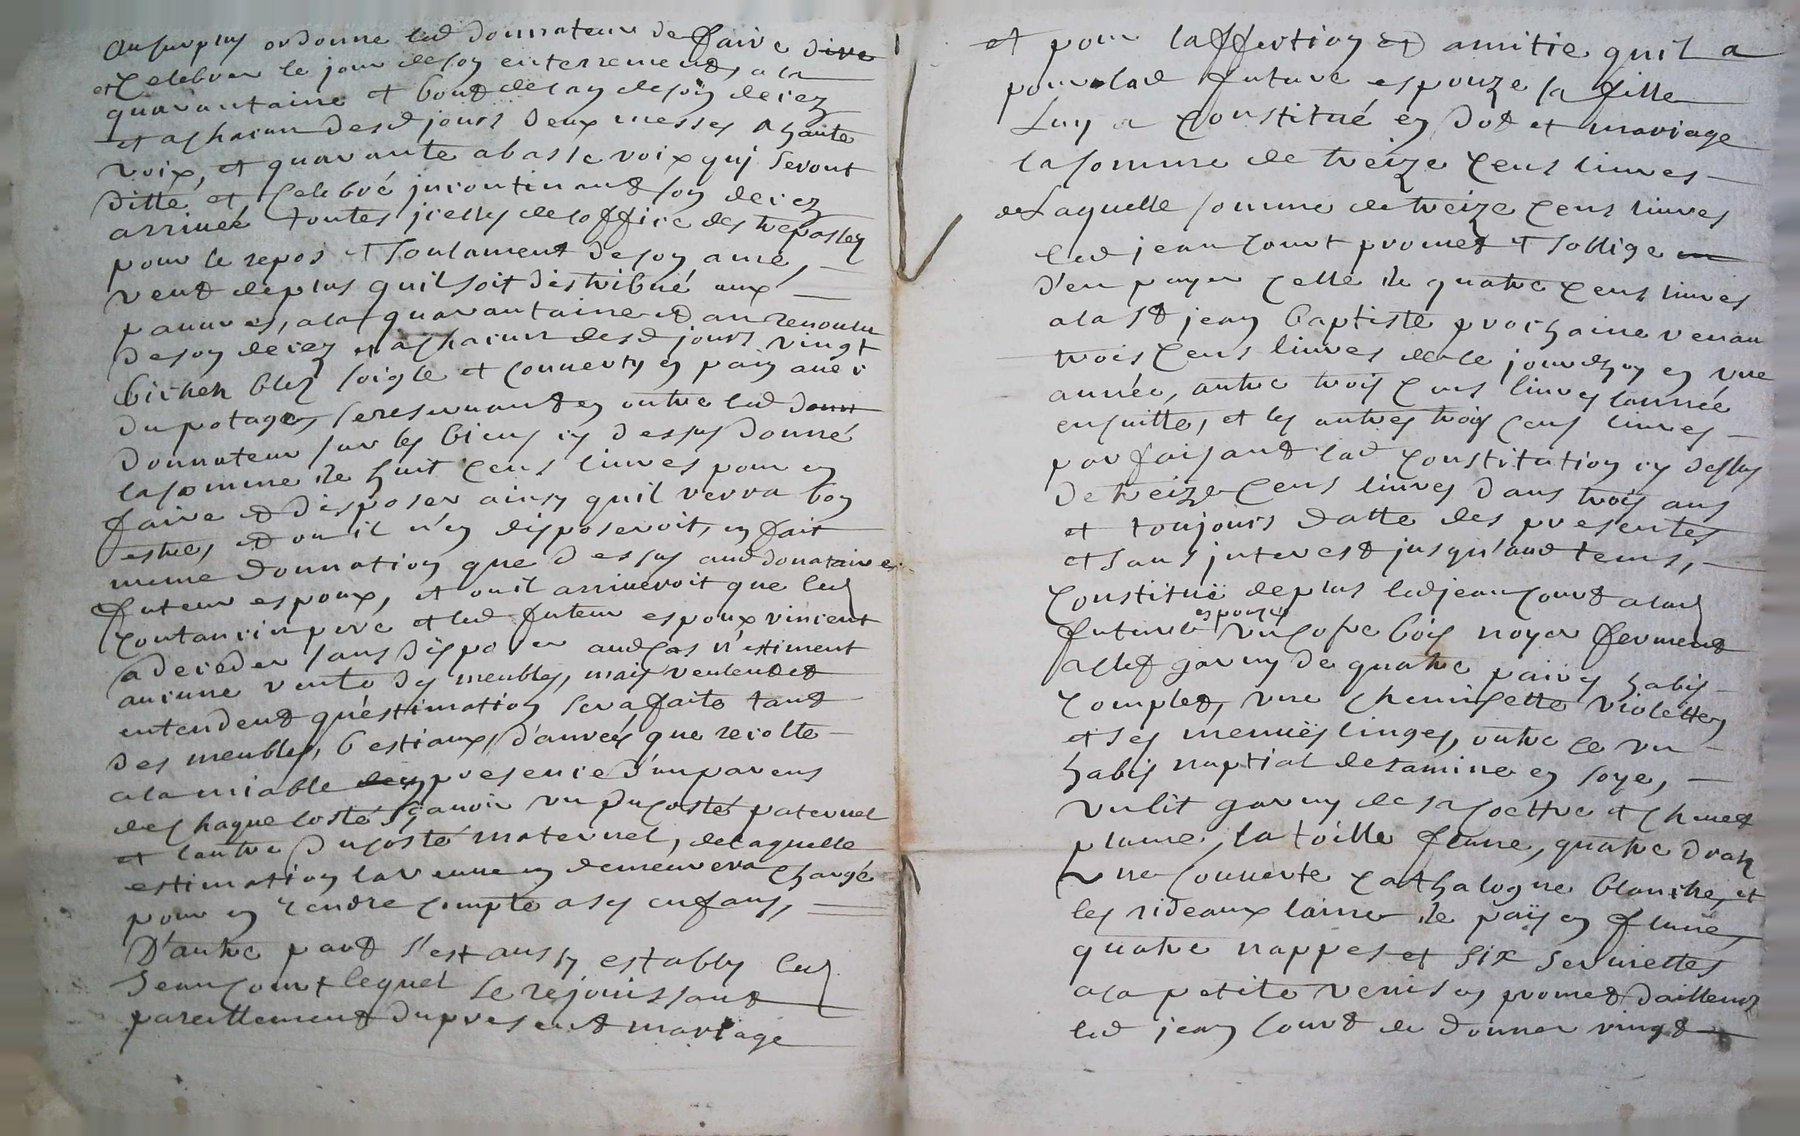 Au surplus ordonne led donnateur de faire dire
et celebrer le jour de son enterrement, a la
quarantaine et bout de lan de son decez
et a chacun desd jours deux messes a haute
voix, et quarante a basse voix qui seront
ditte et celebré incontinant son decez
arrivée toutes icelles de loffice des trepassez
pour le repos et soulament de son ame,
veut de plus quil soit distribué aux
pauvres, a la quarantaine et au renoulu
de son decez et a chacun desd jours vingt
bichen blez soigle et converty en pain avec
du potage, se reservant en outre led donn
donnateur sur les biens cy dessus donné
la somme de huit cens livres pour en
faire et disposer ainsy quil verra bon
estre, et ou il n'en disposeroit, en fait
meme donnation que dessus aud donataire
futeur espoux, et ou il arriveroit que led
Contancin pere et led futeur espoux vincent
a deceder sans disposer aud cas n'estiment
aucune vente des meubles, mais veulent et
entendent qu'estimation sera faite tant
des meubles, bestiaux, danrées que recolte
a lamiable des presence d'un parens
de chaque costé sçavoir un du costé paternel
et lautre du costé maternel, de laquelle
estimation la veuve en demeurera chargé
pour en rendre compte a ses enfans,
D'autre part s'est aussy estably led
Jean Court lequel se rejouissant
pareillement du present mariage
et pour laffection et amitie quil a
pour lad future espouze sa fille
Luy a constitué en dot et mariage
la somme de treize cens livres
de Laquelle somme de treize cens livres
led jean Court promet et soblige
d'en payer celle de quatre cens livres
a la St jean baptiste prochaine venan
trois cens livres de ce jourdhuy en une
année, autre trois cens livres lannée
ensuitte, et les autres trois cens livres
parfaisant lad constitution cy dessus
de treize cens livres dans trois ans
et toujours datte des presentes
et sans interest jusqu'aud tems,
Constitue de plus led jean Court a lad
future espouze un cofre bois noyer fermant
a clef garny de quatre paires habis
complet, une chemisette violette
et ses menuës linges, outre ce un
habis nuptial destamine en soye,
un lit garny de sa coettre et chevet
plume, la toille fleurie, quatre drah
une couverte cathalogne blanche, et
les rideaux laine de païs en fleurie,
quatre nappes et six serviettes
a la petite venise, promet dailleurs
led jean Court de donner vingt